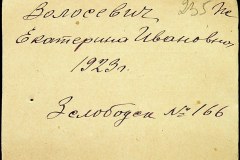 Волосевич
Екатерина Ивановна
1923 г.
Зслободск № 166